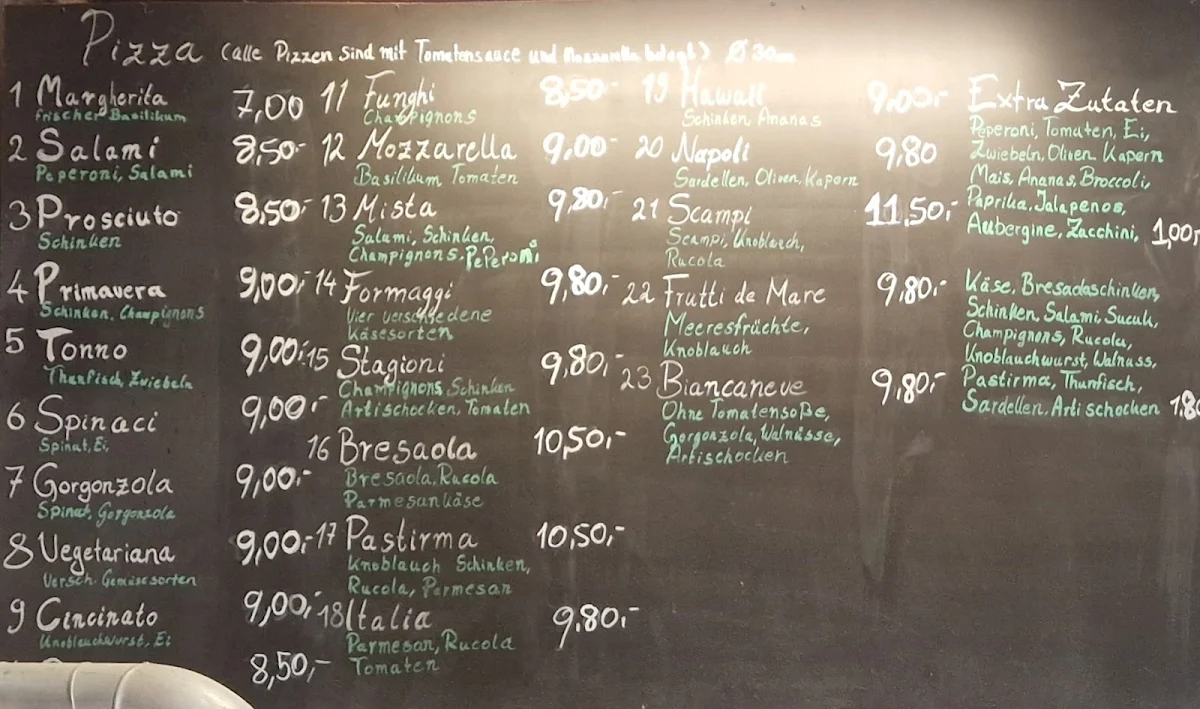 Pizza (alle Pizzen sind mit Tomatensauce und Mozzarella belegt) Ø 30cm
1 Margherita 7,00
Frischer Basilikum
2 Salami 8,50-
Peperoni, Salami
3 Prosciuto 8,50-
Schinken
4 Primavera 9,00-
Schinken, Champignons
5 Tonno 9,00-
Thunfisch, Zwiebeln
6 Spinaci 9,00-
Spinat, Ei,
7 Gorgonzola 9,00-
Spinat, Gorgonzola
8 Vegetariana 9,00,-
Versch. Gemüsesorten
9 Cincinato 9,00,-
Knoblauchwurst, Ei
8,50,-
11 Funghi 8,50-
Champignons
12 Mozzarella 9,00-
Basilikum Tomaten
13 Mista 9,80,-
Salami, Schinken,
Champignons, Peperoni
14 Formaggi 9,80,-
Vier verschiedene
Käsesorten
15 Stagioni 9,80,-
Champignons Schinken
Artischocken, Tomaten
16 Bresaola 10,50,-
Bresaola, Rucola
Parmesankäse
17 Pastirma 10,50,-
Knoblauch Schinken,
Rucola, Parmesan
18 Italia 9,80,-
Parmesan, Rucola
Tomaten
19 Hawaii 9,00,-
Schinken, Ananas
20 Napoli 9,80
Sardellen, Oliven, Kapern
21 Scampi 11,50,-
Scampi, Knoblauch,
Rucola
22 Frutti de Mare 9,80,-
Meeresfrüchte,
Knoblauch
23 Biancaneve 9,80,-
Ohne Tomatensoße,
Gorgonzola, Walnüsse,
Artischocken
Extra Zutaten
Peperoni, Tomaten, Ei,
Zwiebeln, Oliven, Kapern
Mais, Ananas, Broccoli,
Paprika, Jalapenos,
Aubergine, Zacchini, 1,00,
Käse, Bresadaschinken,
Schinken, Salami, Sucuk,
Champignons, Rucola,
Knoblauchwurst, Walnuss,
Pastirma, Thunfisch,
Sardellen, Artischocken 1,80